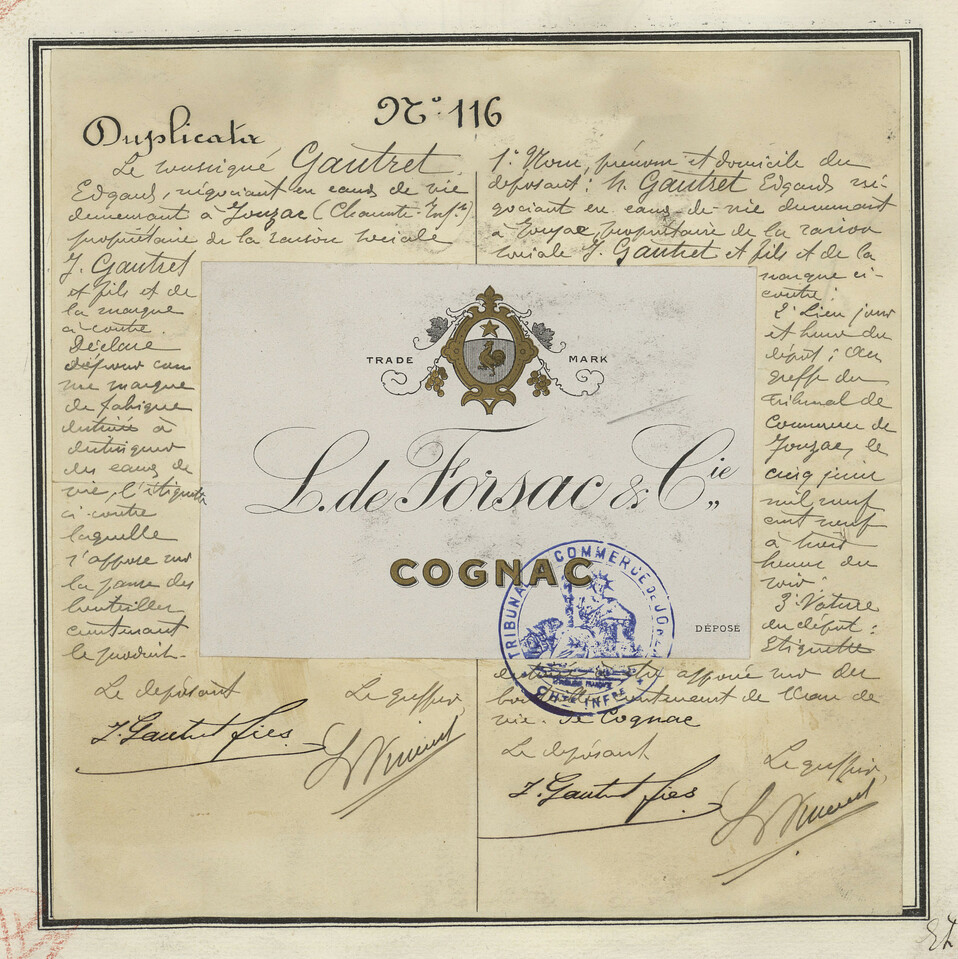 Nº 116
Duplicata
Le soussigné Gautret
Edgard, négociant en eaux de vie
demeurant à Jonzac (Charente-Infre)
propriétaire de la raison sociale
J. Gautret
et fils et de
la marque
ci-contre.
Déclare
déposer comme
marque
de fabrique
destinée à
distinguer
des eaux de
vie, l'étiquette
ci-contre
laquelle
s'appose sur
la panse des
bouteilles
contenant
le produit.
Le déposant
Le greffier,
J. Gautret fils
L Vincent
1º Nom, prénom et domicile du
déposant: M. Gautret Edgard né-
gociant en eaux-de-vie demeurant
à Jonzac, propriétaire de la raison
sociale J. Gautret et fils et de la
marque ci-
contre:
2º Lieu, jour
et heure du
dépôt: Au
greffe du
Tribunal de
Commerce de
Jonzac, le
cinq juin
mil neuf
cent neuf
à huit
heures du
soir.
3º Nature
du dépôt:
Etiquette
apposée sur des
contenant de l'eau de
vie. de Cognac
Le déposant
Le greffier,
J. Gautret fils
L Vincent
TRADE MARK
L. de Forsac & Cie
COGNAC
DÉPOSÉ
TRIBUNAL COMMERCE DE JON
CHte INFRE